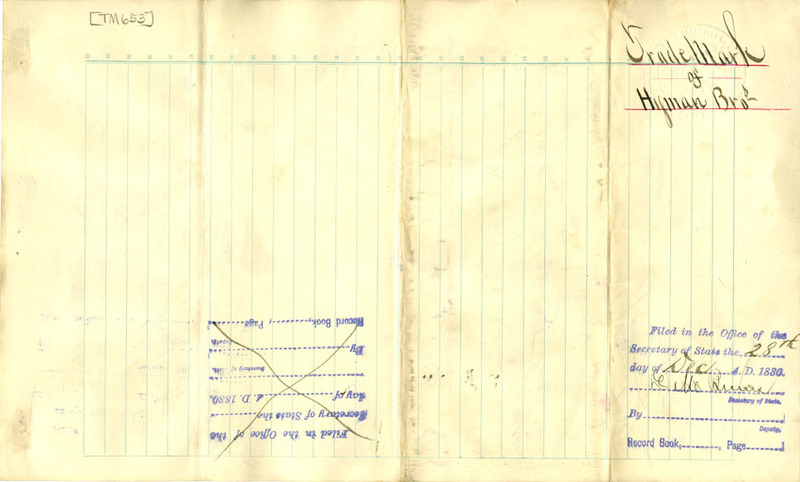 [TM653]
Trade Mark
of
Hyman Bros
Filed in the Office of the
Secretary of State the 28th
day of Dec. A. D. 1880.
Secretary of State.
By
Deputy.
Record Book, Page
Filed in the Office of the
Secretary of State the
day of A. D. 1880.
Secretary of State.
By
Deputy.
Record Book, Page